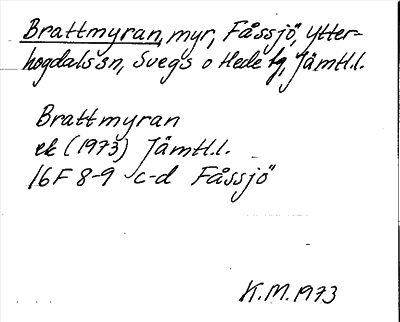 Brattmyran, myr, Fåssjö, Ytter-
hogdals sn, Svegs o Hede tg, Jämtl.l.
Brattmyran
ek (1973) Jämtl.l.
16F 8-9 c-d Fåssjö
K.M. 1973